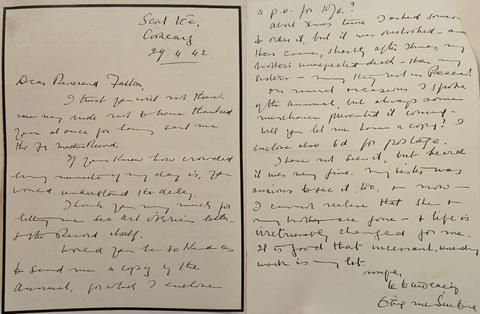 29. 4. 42.
Dear Reverend Father,
I trust you will not think
me very rude not to have thanked
you at once for having sent me
the
If you knew how crowded
every minute of my day is, you
would understand the delay.
I thank you very much for
letting me see Art O'Brien's letter
& the Record itself.
Would you be so kind as
to send me a copy of the
Annual, for which I enclose
a p.o. for 10/6?
About Xmas time I asked someone
to order it, but it was overlooked - and
then came, shortly after Xmas, my
brother's unexpected death - then my
sister's - may they rest in Peace!
On several occasions I spoke
of the Annual, but always some
mischance prevented it coming -
Will you let me have a copy? I
enclose also 6d for postage.
I have not seen it, but heard
it was very fine. My sister was
anxious to see it, too. & now -
I cannot realise that she &
my brother are gone - & life is
irretrievably changed for me.
It is good that incessant, unending
work is my lot.